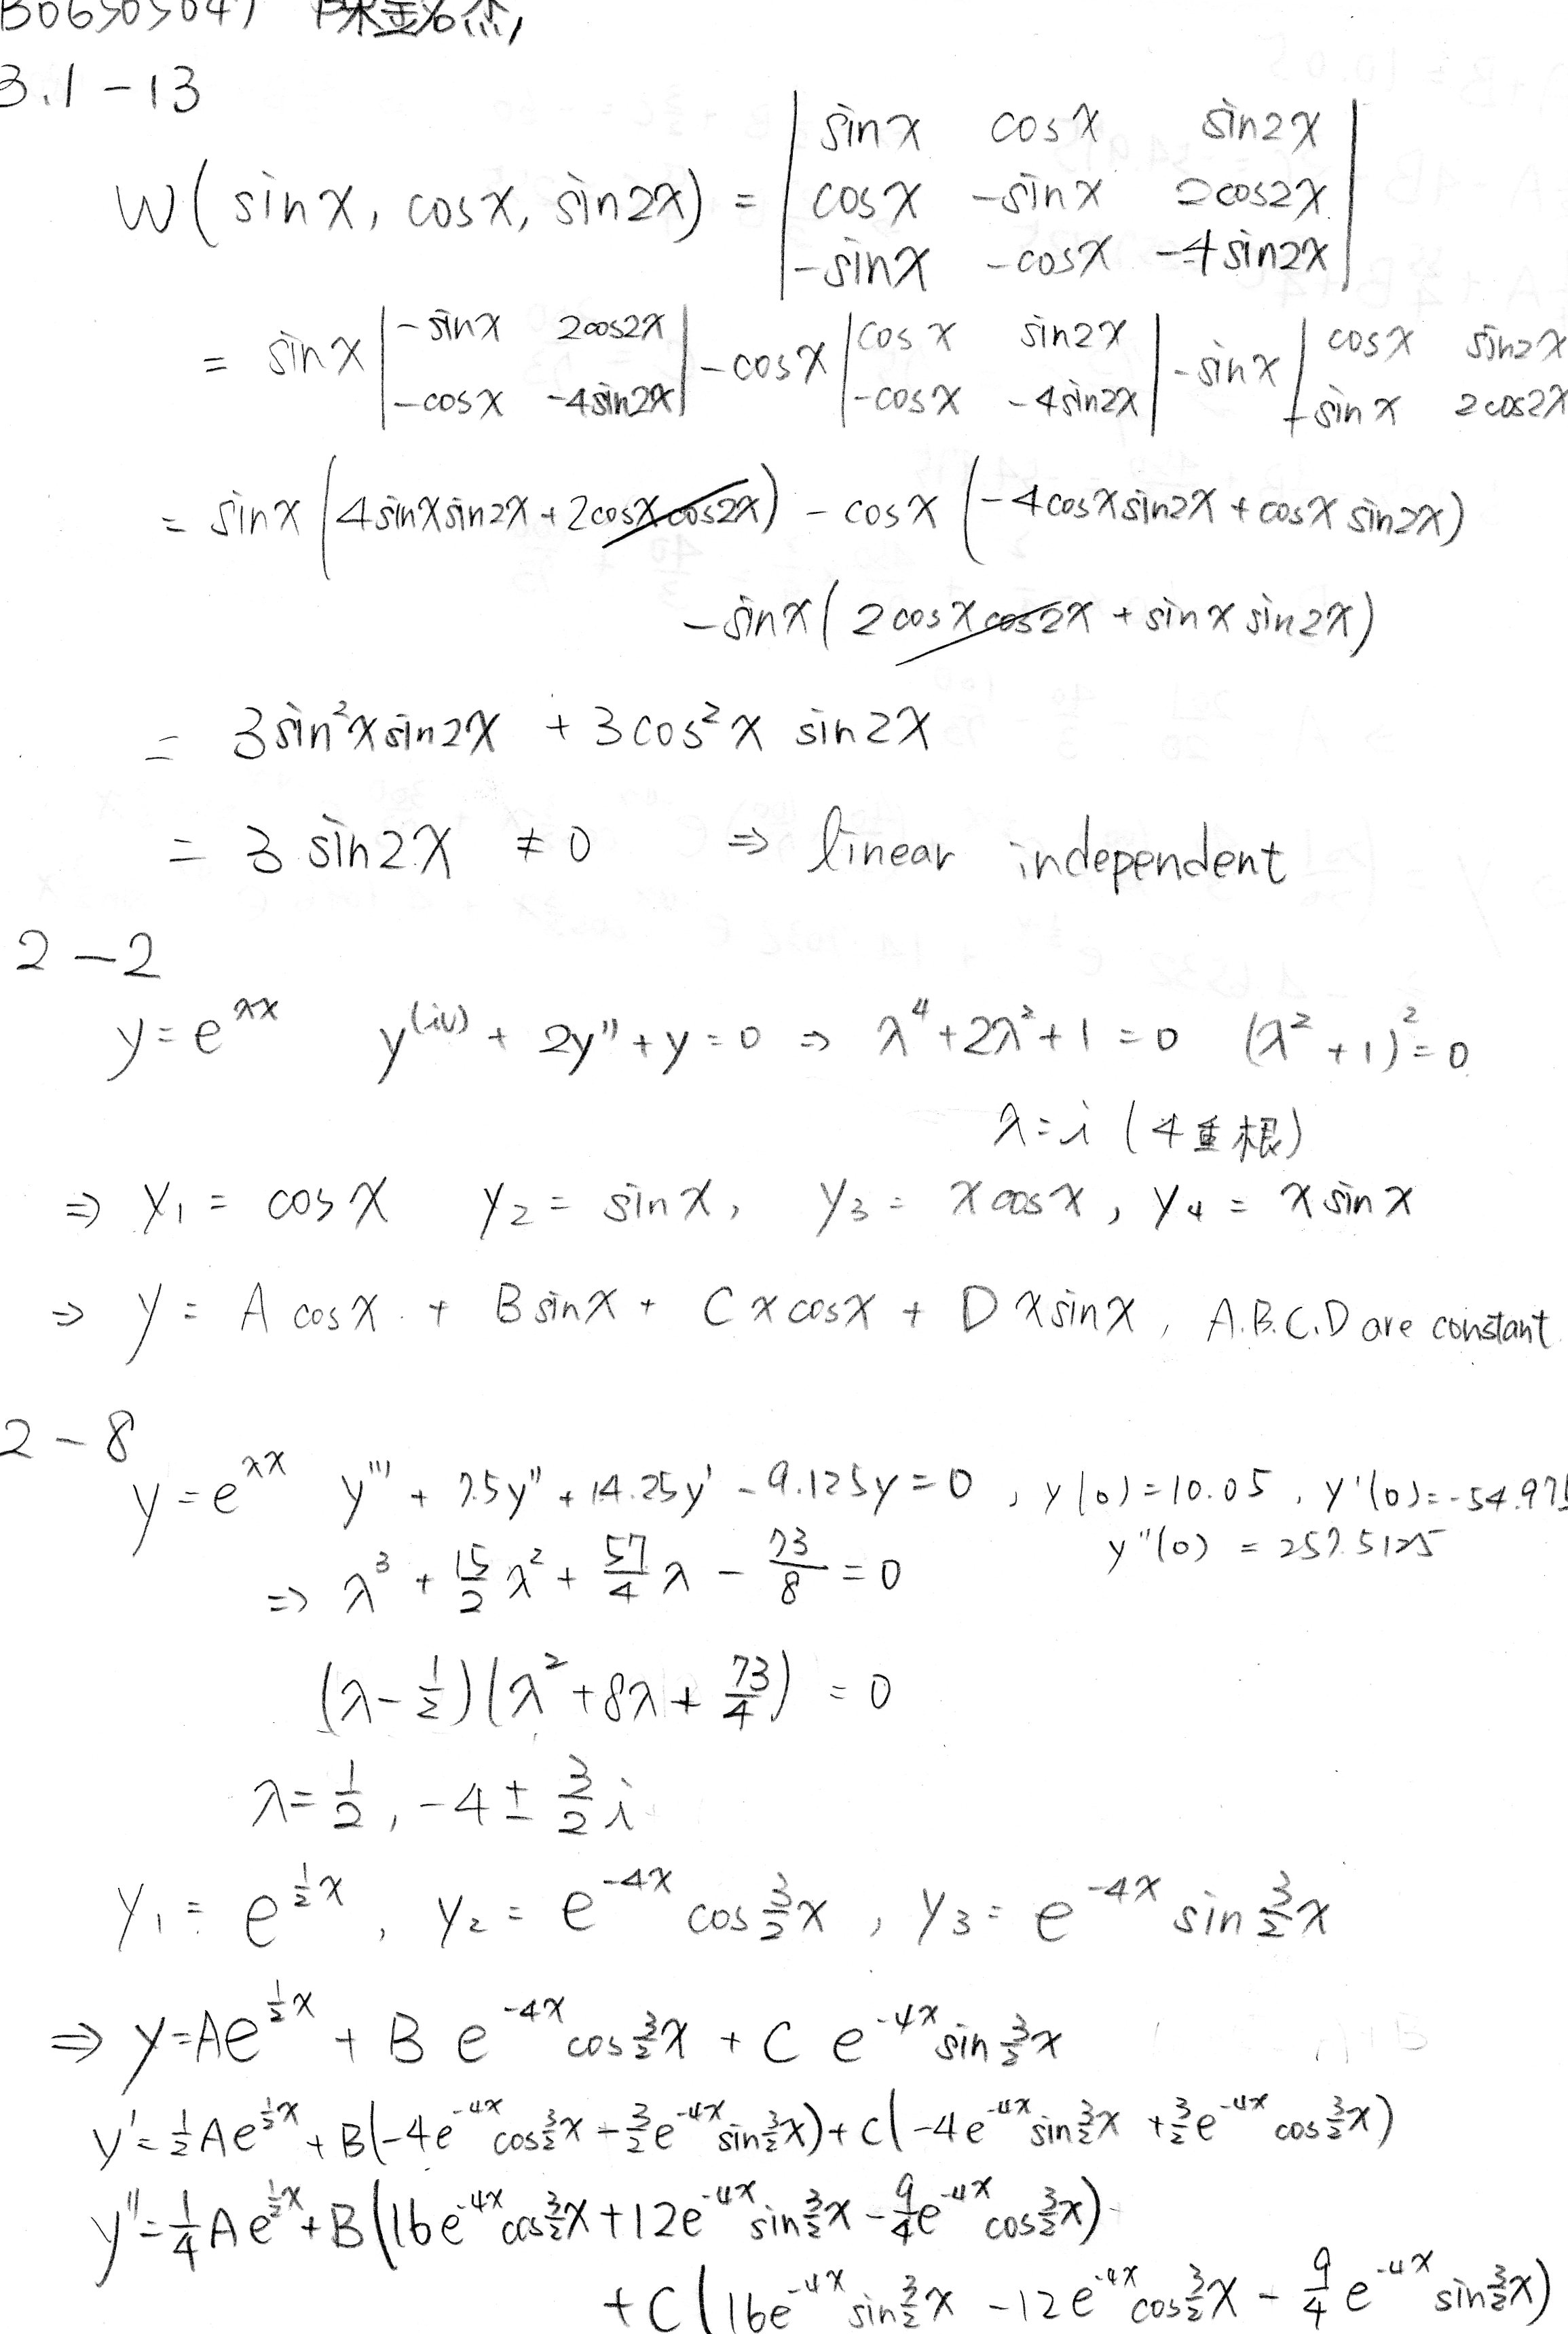 B06505047 陳
3.1-13
W(sinx, cosx, sin2x) = | sinx cosx sin2x |
| cosx -sinx 2cos2x |
| -sinx -cosx -4sin2x |
= sinx | -sinx 2cos2x ; -cosx -4sin2x | - cosx | cosx sin2x ; -cosx -4sin2x | - sinx | cosx sin2x ; -sinx 2cos2x |
= sinx (4sinxsin2x + 2cosxcos2x) - cosx (-4cosxsin2x + cosx sin2x)
- sinx (2cosxcos2x + sinx sin2x)
= 3sin²xsin2x + 3cos²x sin2x
= 3 sin2x ≠ 0 ⇒ linear independent
2-2
y = e^{λx} y^{(iv)} + 2y'' + y = 0 ⇒ λ⁴ + 2λ² + 1 = 0 (λ² + 1)² = 0
λ = i (4重根)
⇒ y₁ = cosx y₂ = sinx, y₃ = xcosx, y₄ = x sinx
⇒ y = A cosx + B sinx + C x cosx + D x sinx, A.B.C.D are constant
2-8
y = e^{λx} y''' + 7.5y'' + 14.25y' - 9.125y = 0, y(0) = 10.05, y'(0) = -54.975
y''(0) = 257.5125
⇒ λ³ + 15/2 λ² + 57/4 λ - 73/8 = 0
(λ - 1/2)(λ² + 8λ + 73/4) = 0
λ = 1/2, -4 ± 3/2 i
y₁ = e^{1/2 x}, y₂ = e^{-4x} cos 3/2 x, y₃ = e^{-4x} sin 3/2 x
⇒ y = Ae^{1/2 x} + B e^{-4x} cos 3/2 x + C e^{-4x} sin 3/2 x
y' = 1/2 Ae^{1/2 x} + B(-4e^{-4x} cos 3/2 x - 3/2 e^{-4x} sin 3/2 x) + C(-4e^{-4x} sin 3/2 x + 3/2 e^{-4x} cos 3/2 x)
y'' = 1/4 Ae^{1/2 x} + B(16e^{-4x} cos 3/2 x + 12e^{-4x} sin 3/2 x - 9/4 e^{-4x} cos 3/2 x)
+ C(16e^{-4x} sin 3/2 x - 12e^{-4x} cos 3/2 x - 9/4 e^{-4x} sin 3/2 x)